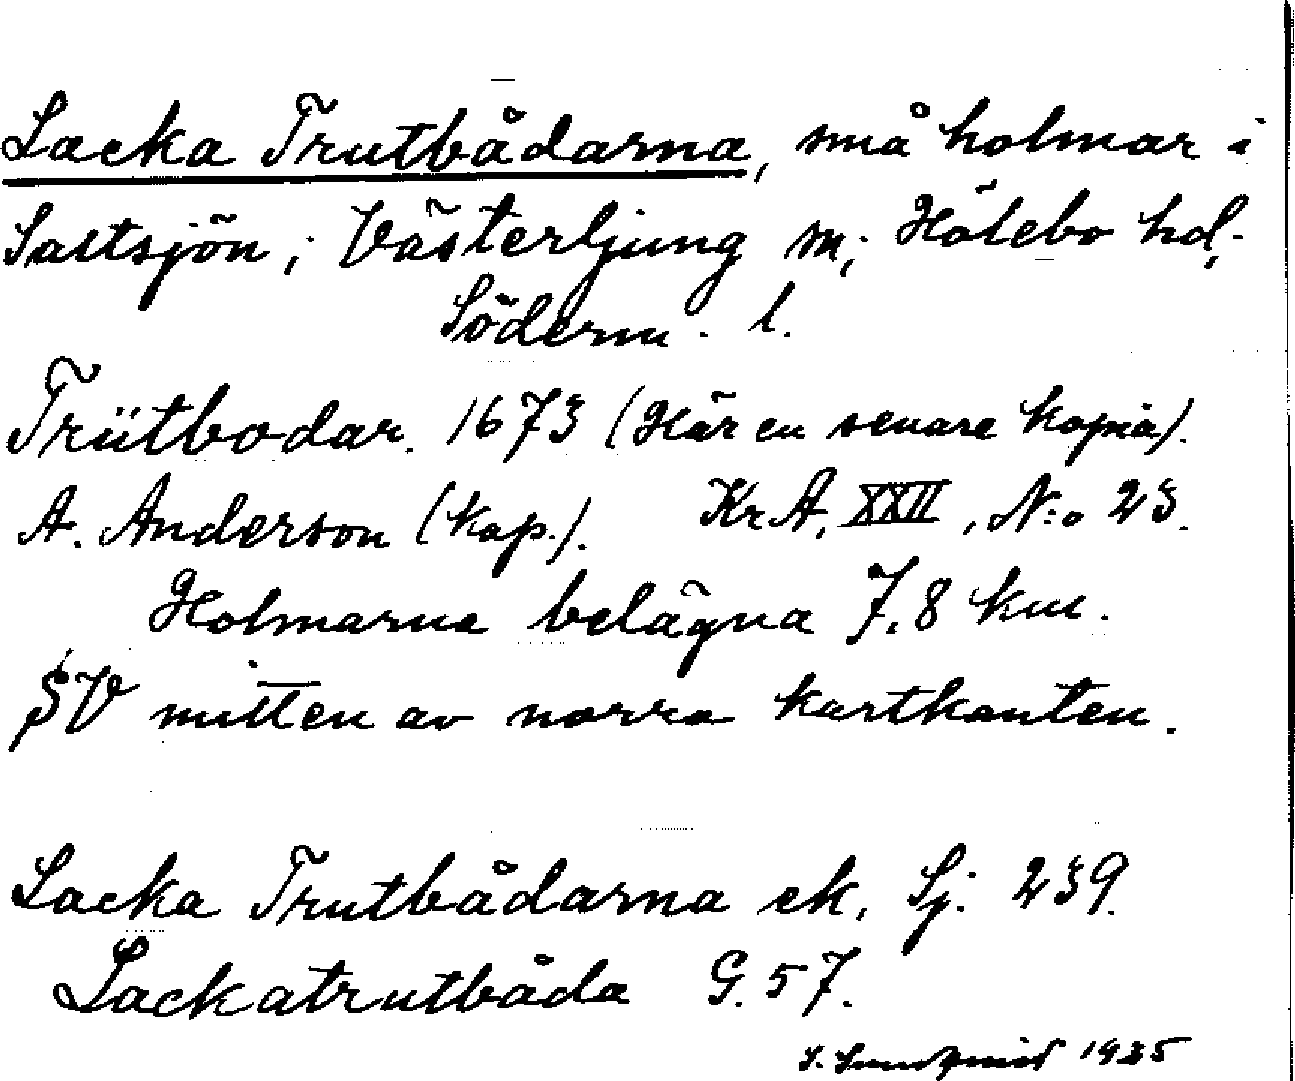 Lacka Trutbådarna, små holmar i
Saltsjön; Västerljung sn; Hölebo hd;
Söderm. l.
Trütbodar. 1673 (Här en senare kopia).
A. Anderson (kop.). Kr A, XXII, N:o 23.
Holmarna belägna 7,8 km.
SV mitten av norra kartkanten.
Lacka Trutbådarna ek. Sj. 239.
Lackatrutbåda G. 57.
S. 1935